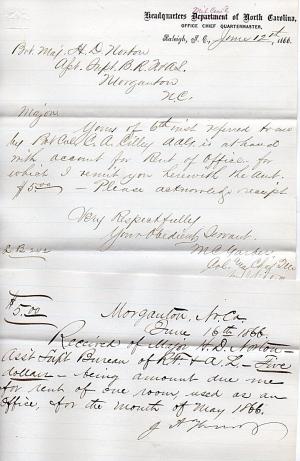 Mil. Com'd
Headquarters Department of North Carolina,
OFFICE CHIEF QUARTERMASTER,
Raleigh, N. C., June 12th, 1866.
Bvt. Maj. H. D. Norton
Asst. Supt. B. R. F. & A. L.
Morganton
N.C.
Major
Yours of 6th inst referred to me
by Bvt Col. C. A. Cilley is at hand
with account for Rent of Office for
which I remit you herewith the amt.
$5.00 — Please acknowledge receipt
Very Respectfully
Your Obedient Servant.
Col.
$5.00
Morganton, No. Ca
June 16th 1866.
Received of Major H. D. Norton
Asst Supt Bureau of R. F. & A. L. — Five
dollars — being amount due me
for rent of one room, used as an
office, for the month of May 1866.